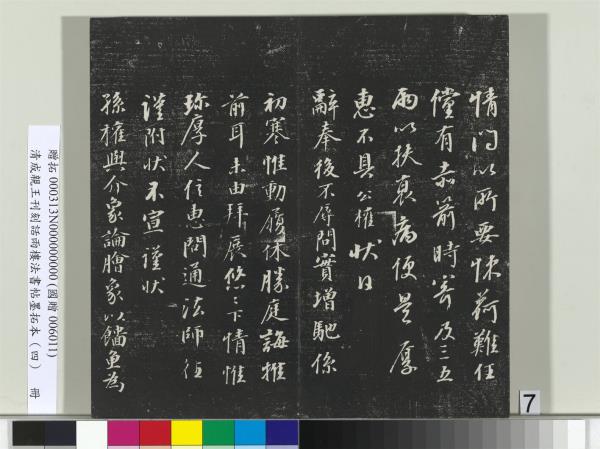 情問以所要悚荷難任
儻有赤箭時寄及三五
兩以扶衰病便是厚
惠不具公權狀日
辭奉後不辱問實增馳係
初寒惟動履休勝庭誨推
前耳未由拜展悠悠下情惟
珍厚人信惠問通法師徃
謹附狀不宣謹狀
孫權與介象論膾象以鯔魚為
贈拓 000313N000000000 (國贈 006011)
清成親王刊刻話雨樓法書帖墨拓本（四） 冊
7